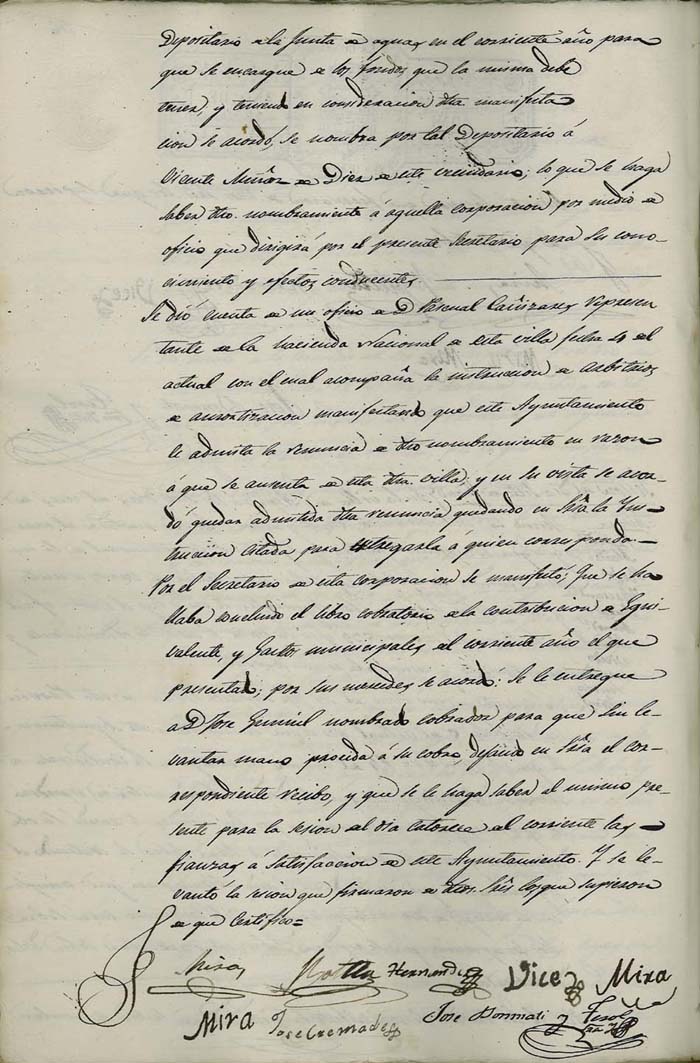 Depositario de la Junta de aguas en el corriente año para
que se encargue de los fondos que la misma debe
tener, y teniendo en consideracion dha. manifesta
cion se acordó, se nombra por tal Depositario á
Vicente Muñoz de Diez de este vecindario; lo que se haga
saber dho. nombramiento á aquella corporacion por medio de
oficio que dirigirá por el presente Secretario para su cono-
cimiento y efectos conducentes
Se dió cuenta de un oficio de D. Pascual Cañizares Represen
tante de la hacienda Nacional de esta villa fecha 4 del
actual con el cual acompaña la instruccion de arbitrios
de amortizacion manifestando que este Ayuntamiento
le admita la renuncia de dho nombramiento en razon
a que se ausenta de esta dha. villa; y en su vista se acor-
dó quedar admitida dha renuncia quedando en Sria la Ins-
truccion citada para entregarla á quien corresponda.
Por el Secretario de esta corporacion se manifestó; Que se ha
llaba concluido el libro cobratorio de la contribucion de Equi-
valente, y Gastos municipales del corriente año el que
presentado; por sus mercedes se acordó: Se le entregue
a D. Jose nombrado cobrador para que sin le-
vantar mano proceda á su cobro, dejando en Sria el cor-
respondiente recibo, y que se le haga saber al mismo pre-
sente para la sesion del dia catorce del corriente las
fianzas á satisfaccion de este Ayuntamiento. Y se le-
vantó la sesion que firmaron de dhos. Sres los que supieron
de que certifico=
Mira Hernandez Vicedo Mira
Mira Jose Cremades Jose Bonmati y